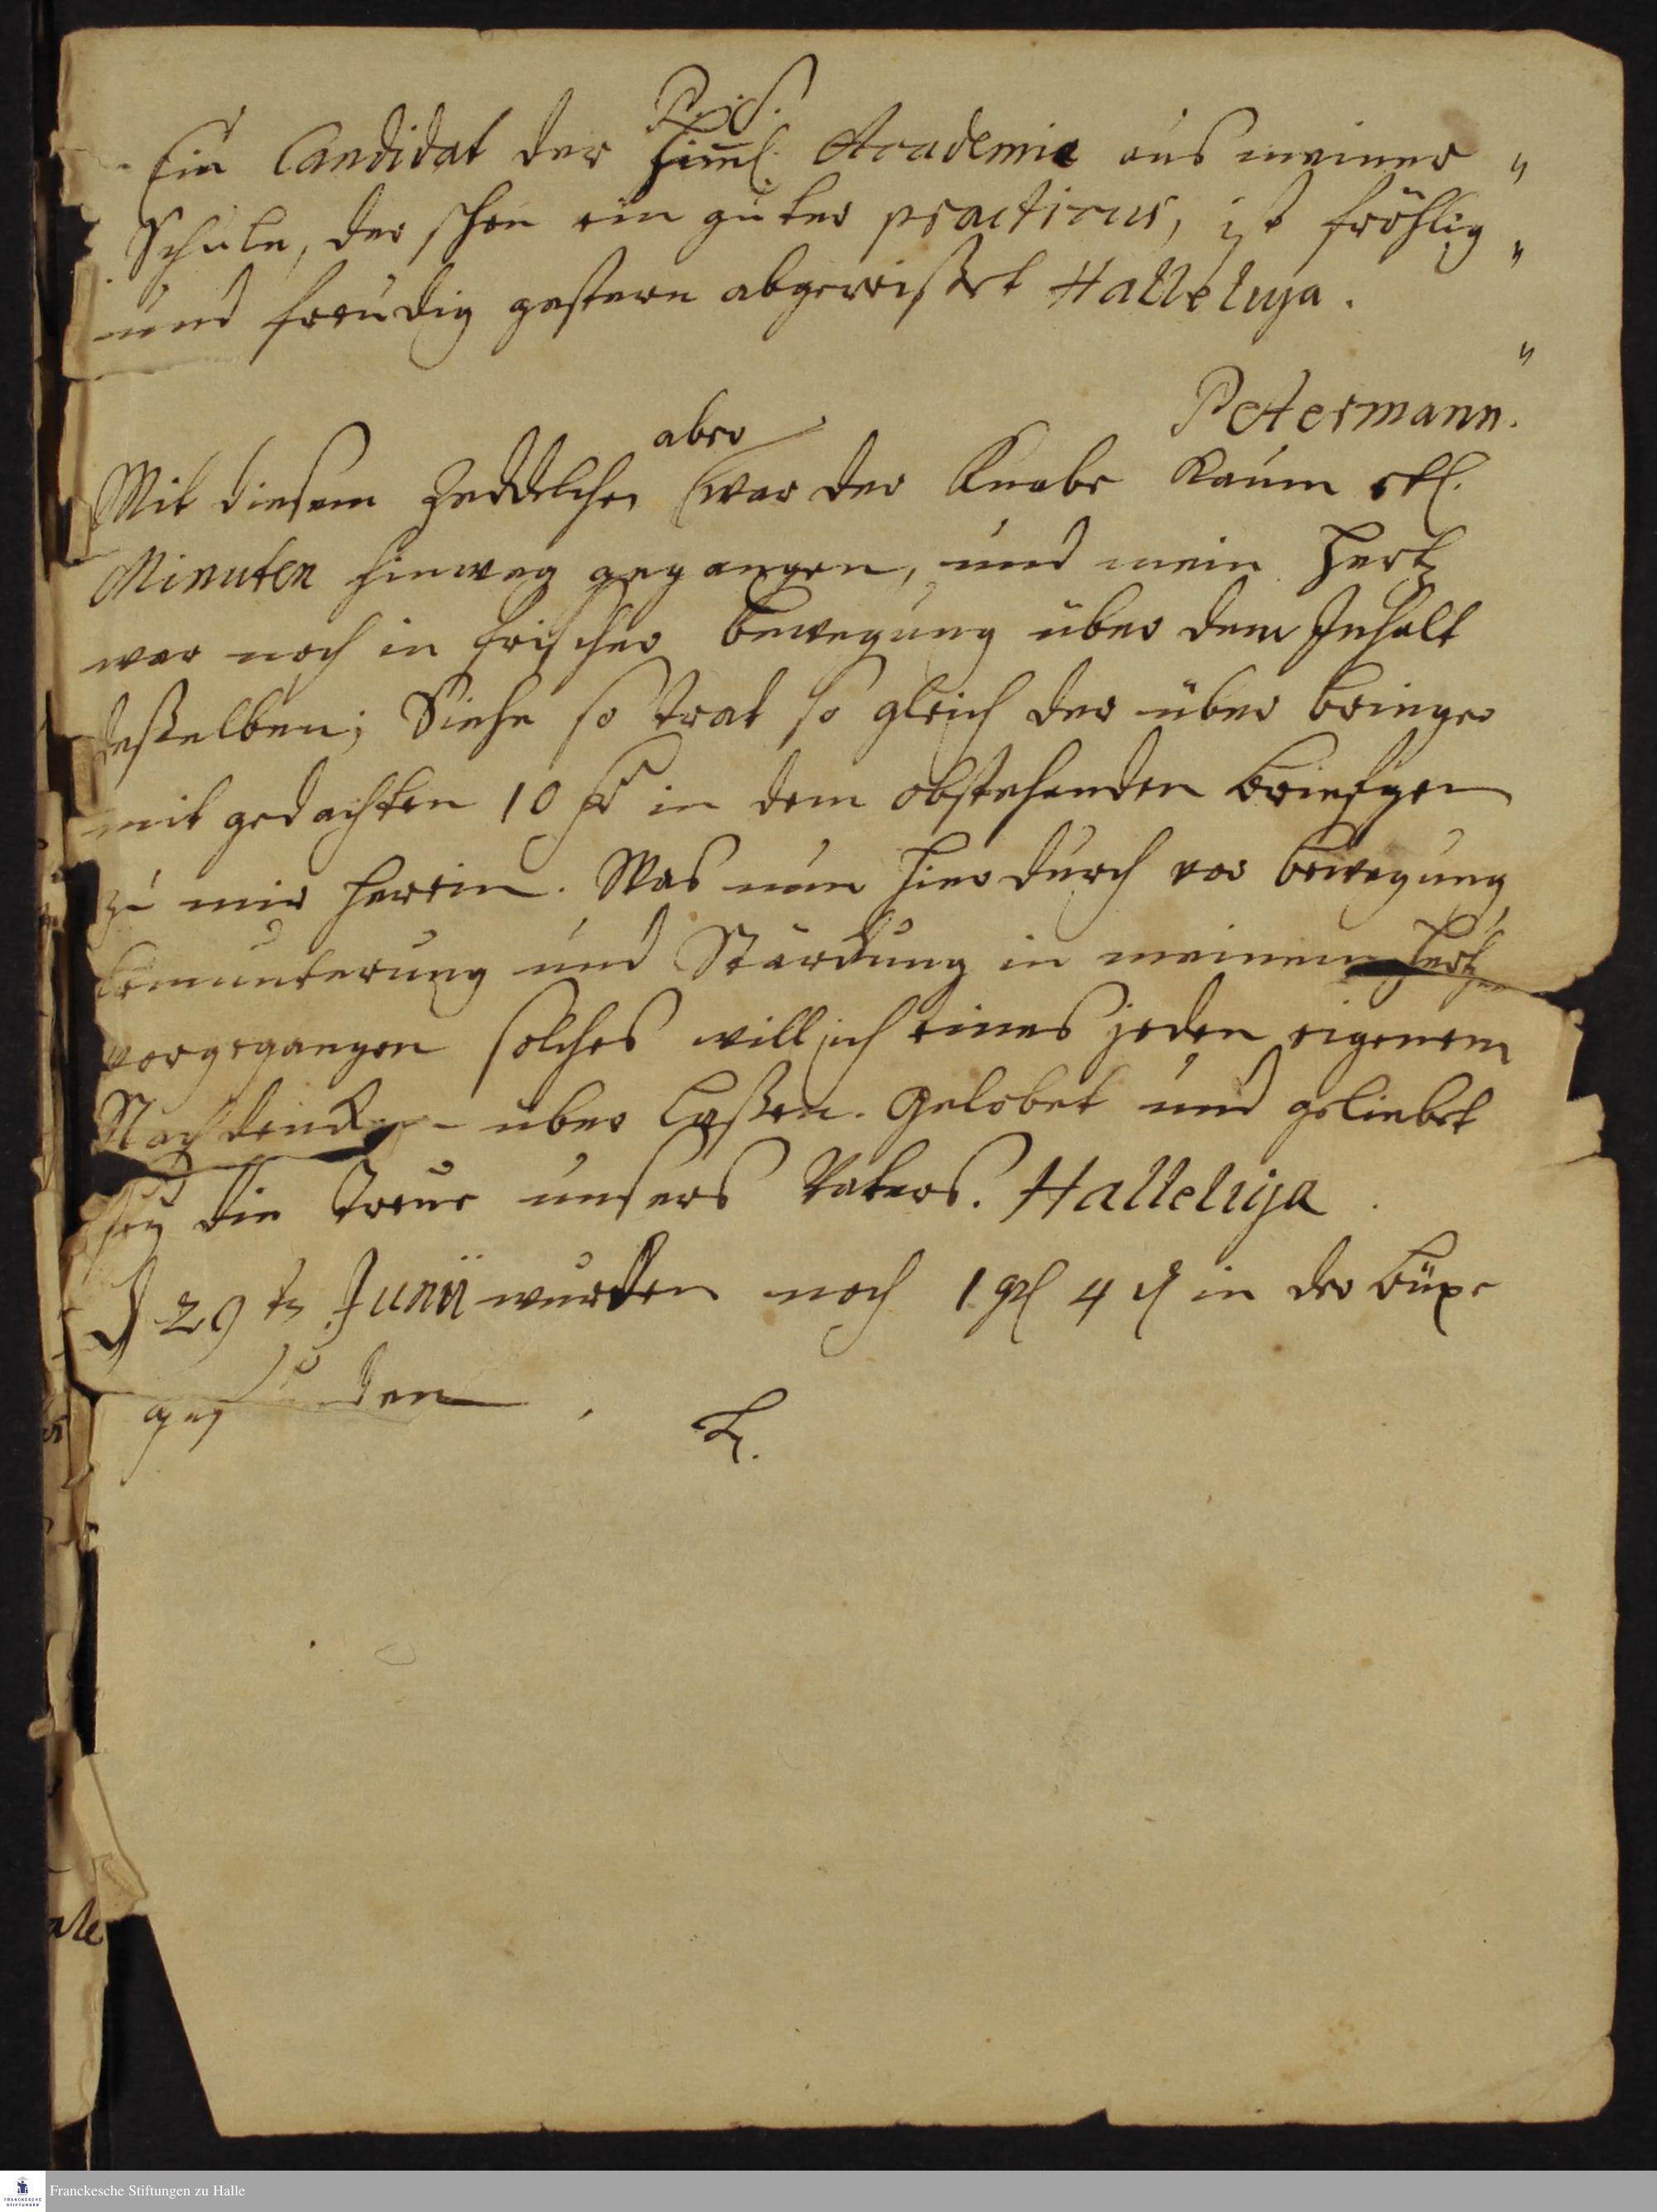 P. S.
Ein Candidat der himl. Academie aus meiner "
Schule, der schon ein guter practicus, ist fröhlig "
und freudig gestern abgereißet Halleluja.
"
Petermann.
aber
Mit diesem Zeddelchen war der Knabe kaum etl.
Minuten hinweg gegangen, und mein Hertz
war noch in frischer bewegung über dem Inhalt
deßelben; Siehe so trat so gleich der über bringer
mit gedachten 10 in dem obstehenden briefgen
zu mir herein. Was nun hierdurch vor bewegung,
Ermunterung und Stärckung in meinem Hertzen
vorgegangen solches will ich eines jeden eigenem
Nachdencken über laßen. Gelobet und geliebet
sey die Treue unsers Vaters. Halleluja.
D 29 ten Junii wurden noch 1 gl 4 d in der büxe
gefunden.
ale
Franckesche Stiftungen zu Halle
FRANCKESCHE
STIFTUNGEN